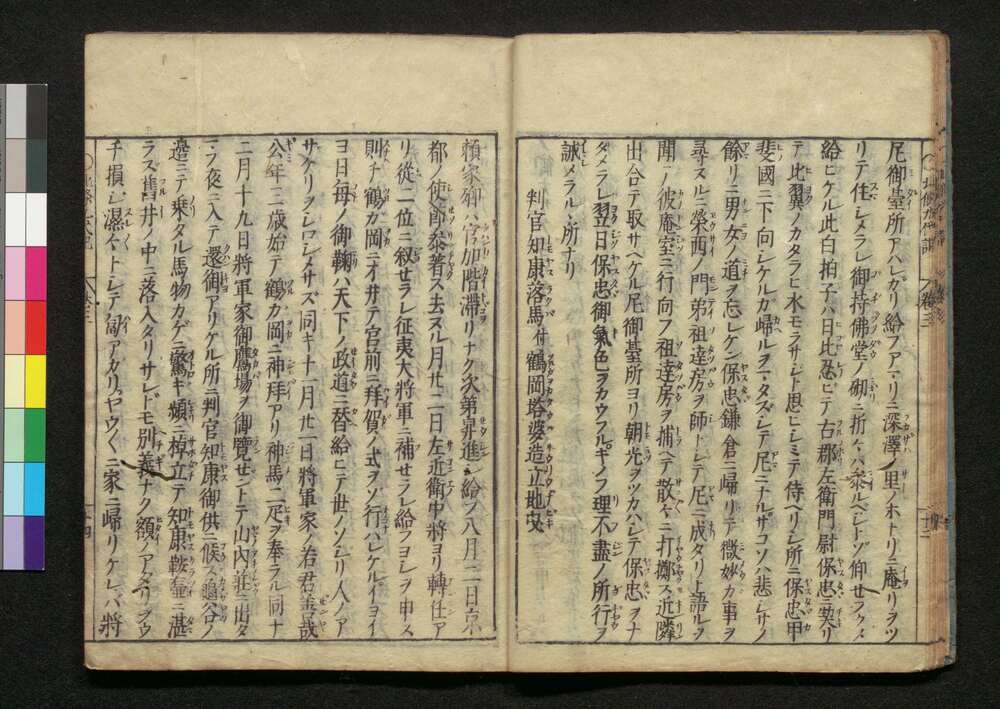 尼御臺所アハレカリ給フアマリニ深澤ノ里ノホトリニ庵リヲツ
リテ住シメラレ御持佛堂ノ砌ニ折々ハ參ルヘシトゾ仰セラ
給ヒケル此白拍子ハ日比忍ヒテ古郡左衛門尉保忠ニ契リ
テ比翼ノカタラヒ水モラサシト思ヒシミテ侍ヘリシ所ニ保忠甲
斐國ニ下向シケルカ歸ルヲマタズシテ尼ニナルサコソハ悲シサノ
餘リニ男女ノ道ヲ忘レケン保忠鎌倉ニ歸リテ微妙カ事ヲ
尋ヌルニ榮西ノ門弟祖達房ヲ師トシテ尼ニ成タリト語ルヲ
聞ノ彼庵室ニ行向フ祖達房ヲ捕ヘテ散々ニ打擲ス近隣
出合テ取サヘケル尼御臺所ヨリ朝光ヲツカハシテ保忠ヲナ
タメラレ翌日保忠御氣色ヲカウフルギノフ理不盡ノ所行ヲ
誡メラルヽ所ナリ
判官知康落馬付鶴岡塔婆造立地曳
頼家卿ハ官加階滯リナク次第昇進シ給フ八月二日京
都ノ使節參著ス去ヌル月廿二日左近衛中將ヨリ轉任ア
リ從二位ニ叙セラレ征夷大將軍ニ補セラレ給フヨシヲ申ス
則チ鶴カ岡ニオ井テ宮前ニ拜賀ノ式ヲソ行ハレケルイヨイ
ヨ日毎ノ御鞠ハ天下ノ政道ニ替給ヒテ世ノソシリ人ノア
サケリヲシロシメサス同キ十一月廿一日將軍家ノ若君善哉
公年三歳始テ鶴カ岡ニ神拜アリ神馬二疋ヲ奉ラル同十
二月十九日將軍家御鷹場ヲ御覽セントテ山内莊ニ出タ
マフ夜ニ入テ還御アリケル所ニ判官知康御供ニ候ス龜谷ノ
邊ニテ乘タル馬物カゲニ驚キ頻ニ棹立テ知康鞍壷ニ湛
ラス舊井ノ中ニ落入タリサレドモ別義ナク額ノアタリヲウ
チ損シ濕々トシテ匐アカリヤウ〱ニ家ニ歸リケレハ將